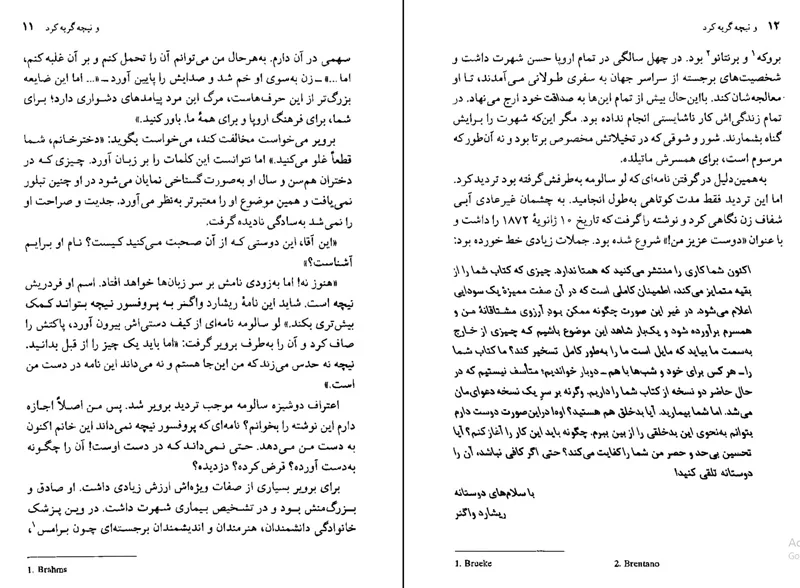 و نیچه گریه کرد ۱۱
سهمی در آن دارم. به‌هرحال من می‌توانم آن را تحمل کنم و بر آن غلبه کنم،
اما...» ــ زن به‌سوی او خم شد و صدایش را پایین آورد ــ «... اما این ضایعه
بزرگ‌تر از این حرف‌هاست، مرگ این مرد پیامدهای دشواری دارد؛ برای
شما، برای فرهنگ اروپا و برای همهٔ ما. باور کنید.»
برویر می‌خواست مخالفت کند، می‌خواست بگوید: «دخترخانم، شما
قطعاً غلو می‌کنید.» اما نتوانست این کلمات را بر زبان آورد. چیزی که در
دختران هم‌سن و سال او به‌صورت گستاخی نمایان می‌شود در او چنین تبلور
نمی‌یافت و همین موضوع او را معتبرتر به‌نظر می‌آورد. جدیت و صراحت او
را نمی‌شد به‌سادگی نادیده گرفت.
«این آقا، این دوستی که از آن صحبت می‌کنید کیست؟ نام او برایم
آشناست؟»
«هنوز نه! اما به‌زودی نامش بر سر زبان‌ها خواهد افتاد. اسم او فردریش
نیچه است. شاید این نامهٔ ریشارد واگنر به پروفسور نیچه بتواند کمک
بیش‌تری بکند.» لو سالومه نامه‌ای از کیف دستی‌اش بیرون آورد، پاکتش را
صاف کرد و آن را به‌طرف برویر گرفت: «اما باید یک چیز را از قبل بدانید.
نیچه نه حدس می‌زند که من این‌جا هستم و نه می‌داند این نامه در دست من
است.»
اعتراف دوشیزه سالومه موجب تردید برویر شد. پس من اصلاً اجازه
دارم این نوشته را بخوانم؟ نامه‌ای که پروفسور نیچه نمی‌داند این خانم اکنون
به دست من می‌دهد. حتی نمی‌داند که در دست اوست! آن را چگونه
به‌دست آورده؟ قرض کرده؟ دزدیده؟
برای برویر بسیاری از صفات ویژه‌اش ارزش زیادی داشت. او صادق و
بزرگ‌منش بود و در تشخیص بیماری شهرت داشت. در وین پزشک
خانوادگی دانشمندان، هنرمندان و اندیشمندان برجسته‌ای چون برامس۱،
1. Brahms
۱۲ و نیچه گریه کرد
بروکه۱ و برنتانو۲ بود. در چهل سالگی در تمام اروپا حسن شهرت داشت و
شخصیت‌های برجسته از سراسر جهان به سفری طولانی می‌آمدند، تا او
معالجه‌شان کند. بااین‌حال بیش از تمام این‌ها به صداقت خود ارج می‌نهاد. در
تمام زندگی‌اش کار ناشایستی انجام نداده بود. مگر این‌که شهوت را برایش
گناه بشمارند. شور و شوقی که در تخیلاتش مخصوص برتا بود و نه آن‌طور که
مرسوم است، برای همسرش ماتیلده.
به‌همین‌دلیل در گرفتن نامه‌ای که لو سالومه به‌طرفش گرفته بود تردید کرد.
اما این تردید فقط مدت کوتاهی به‌طول انجامید. به چشمان غیرعادی آبی
شفاف زن نگاهی کرد و نوشته را گرفت که تاریخ ۱۰ ژانویهٔ ۱۸۷۲ را داشت و
با عنوان «دوست عزیز من!» شروع شده بود. جملات زیادی خط خورده بود:
اکنون شما کاری را منتشر می‌کنید که همتا ندارد. چیزی که کتاب شما را از
بقیه متمایز می‌کند، اطمینان کاملی است که در آن صفت ممیزهٔ یک سودایی
اعلام می‌شود. در غیر این صورت چگونه ممکن بود آرزوی مشتاقانهٔ من و
همسرم برآورده شود و یک‌بار شاهد این موضوع باشیم که چیزی از خارج
به‌سمت ما بیاید که مایل است ما را به‌طور کامل تسخیر کند؟ ما کتاب شما
را ــ هر کس برای خود و شب‌ها با هم ــ دوبار خواندیم؛ متأسف نیستیم که در
حال حاضر دو نسخه از کتاب شما را داریم. وگرنه بر سرِ یک نسخه دعوای‌مان
می‌شد. اما شما بیمارید. آیا بدخلق هم هستید؟ اوه! دراین‌صورت دوست دارم
بتوانم به‌نحوی این بدخلقی را از بین ببرم. چگونه باید این کار را آغاز کنم؟ آیا
تحسین بی‌حد و حصر من شما را کفایت می‌کند؟ حتی اگر کافی نباشد، آن را
دوستانه تلقی کنید!
با سلام‌های دوستانه
ریشارد واگنر
1. Brueke 2. Brentano